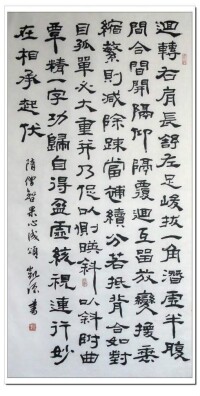 迴轉右肩長舒左足峻拔一角潛虛半腹
間合間開隔仰隔覆迴互留放變換垂
縮繁則減除疎當補續分若抵背合如對
目孤單必大重并乃促以側映斜以斜附曲
覃精一字功歸自得盈虛統視連行妙
在相承起伏
隋僧智果心成頌 書